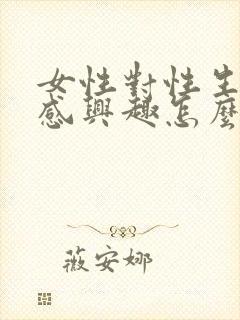 女性對性生
感興趣怎麼
薇安娜